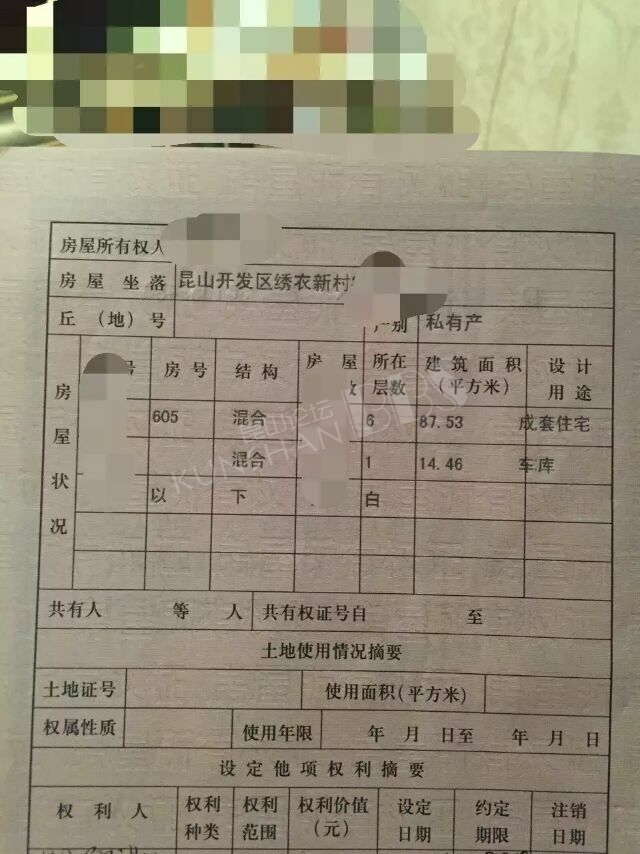 房屋所有权人
房屋 坐落 昆山开发区绣衣新村
丘 （地） 号 产别 私有产
房屋状况
号 房号 结构 房屋 数 所在层数 建筑面积（平方米） 设计用途
605 混合 6 87.53 成套住宅
混合 1 14.46 车库
以 下 白
共有人 等 人 共有权证号自 至
土地使用情况摘要
土地证号 使用面积(平方米)
权属性质 使用年限 年 月 日至 年 月 日
设定他项权利摘要
权利人 权利种类 权利范围 权利价值（元） 设定日期 约定期限 注销日期
昆山论坛
KUNSHAN BBS